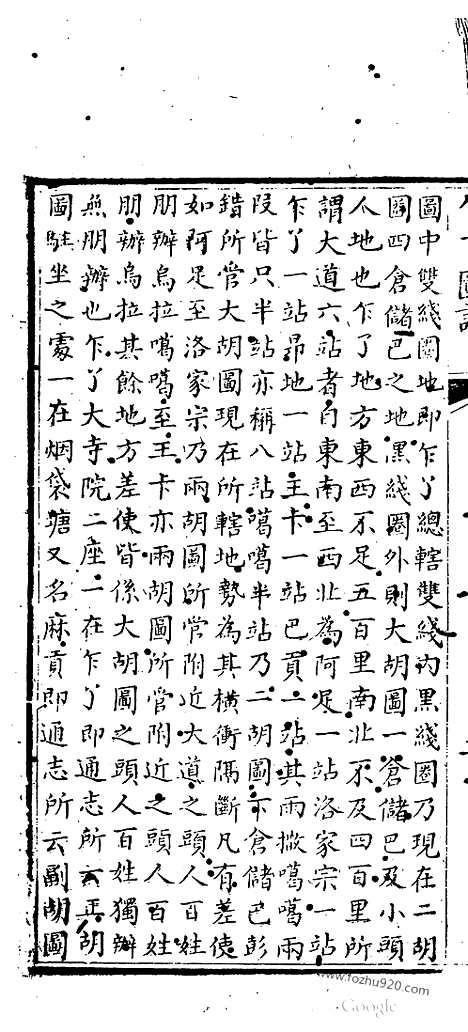 圖中雙綫圈地即乍丫總轄雙綫內黑綫圈乃現在二胡
圖四倉儲巴之地黑綫圈外則大胡圖一倉儲巴及小頭
人地也乍丫地方東西不足五百里南北不及四百里所
謂大道六站者自東南至西北為阿足一站洛家宗一站
乍丫一站昂地一站王卡一站巴貢一站其雨撒噶噶兩
段皆只半站亦稱八站噶噶半站乃二胡圖下倉儲巴彭
錯所管大胡圖現在所轄地勢為其橫衝隔斷凡有差使
如阿足至洛家宗乃兩胡圖所管附近大道之頭人百姓
朋辦烏拉噶噶至王卡亦兩胡圖所管附近之頭人百姓
朋辦烏拉其餘地方差使皆係大胡圖之頭人百姓獨辦
無朋辦也乍丫大寺院二座一在乍丫即通志所云正胡
圖駐坐之處一在烟袋塘又名麻貢即通志所云副胡圖
www.fozhu920.com
Google